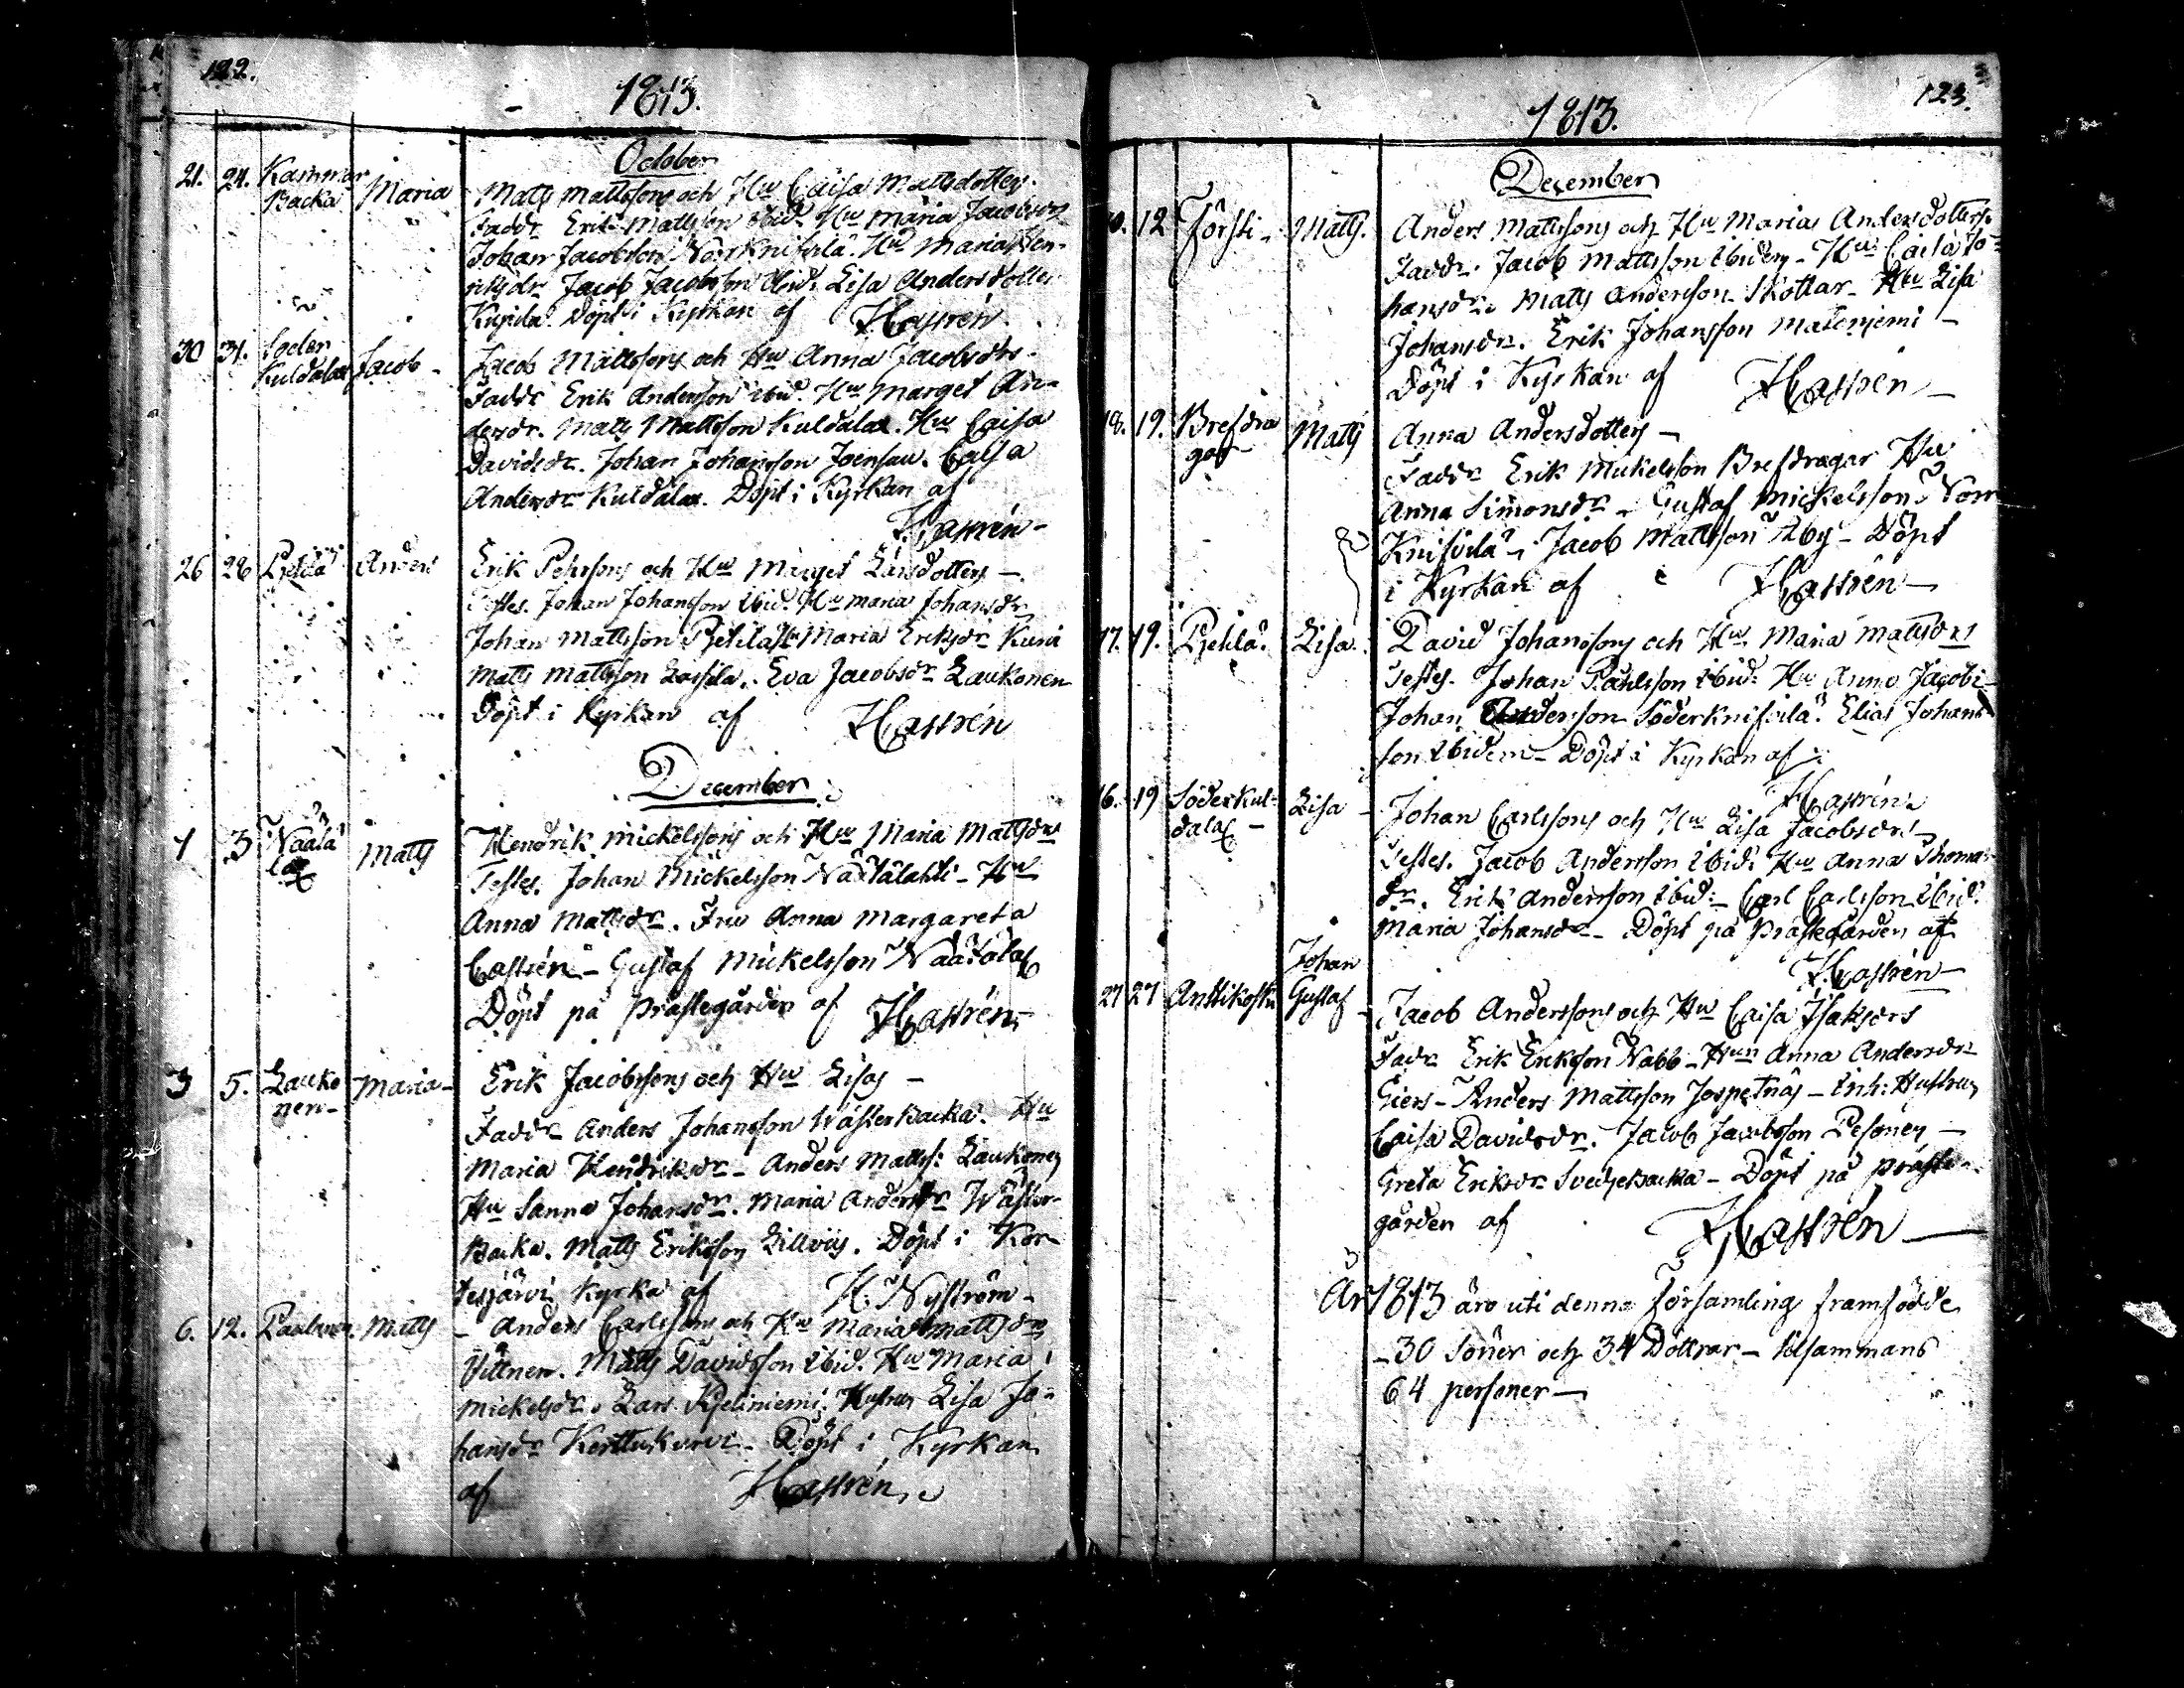 122.
1813.
October
21. 24. Kammar Backa Maria Matts Mattssons och Hu Caisa Mattsdotters.
Faddr Erik Mattsson ibid. Hu Maria Jacobsdr
Johan Jacobsson Norrknifvilä. Hu Maria Hen-
riksdr Jacob Jacobsson ibid: Lisa Andersdotter
Döpt i Kyrkan af HCastrén.
30 31. Söder Kuldalax Jacob - Jacob Mattssons och Hu Anna Jacobsdrs.
Faddr Erik Andersson ibid. Hu Marget An-
dersdr. Matts Mattsson Kuldalax. Hu Caisa
Davidsdr. Johan Johansson Joensuu. Caisa
Andersdr Kuldalax. Döpt i Kyrkan af
HCastrén -
26 28 Pjelilä Anders Erik Pehrsons och Hu Marget Larsdotters -
Testes. Johan Johansson ibid. Hu Maria Johansdr
Johan Mattsson Pjelilä Hu Maria Eriksdr
Matts Mattsson Lassila. Eva Jacobsdr Laukonen
Döpt i Kyrkan af HCastrén
December
1 3 Näätä lax Matts Hendrik Mickelssons och Hu Maria Mattsdrs
Testes. Johan Mickelsson Näätälahti - Hu
Anna Mattsdr. Fru Anna Margareta
Castrén - Gustaf Mickelsson Näätälax
Döpt på Prästegården af HCastrén -
3 5. Lauko nen - Maria - Erik Jacobssons och Hu Lisas -
Faddr Anders Johansson Wästerbacka. Hu
Maria Hendriksdr - Anders Matts: Laukonen
Hu Sanna Johansdr. Maria Andersdr Wäster-
backa. Matts Eriksson Lillviis. Döpt i Kor-
tesjärvi Kyrka af H. Nyström -
6. 12. Paalanen. Matts - Anders Carlssons och Hu Maria Mattsdrs
Vittnen. Matts Davidsson ibid. Hu Maria
Mickelsdr. Lars Kjeliniemi. Hustru Lisa Jo-
hansdr Kerttukurvi - Döpt i Kyrkan
af HCastrén.
123.
1813.
December
10. 12 Försti - Matts. Anders Mattssons och Hu Marias Andersdotters.
Faddr. Jacob Mattsson ibidem - Hu Caisa Jo-
hansdr. Matts Andersson Skottar - Hu Lisa
Johansdr. Erik Johansson Mateniemi -
Döpt i Kyrkan af HCastrén -
18. 19. Brefdra gar - Matts Anna Andersdotters -
Faddr Erik Mickelsson Brefdragar Hu
Anna Simonsdr - Gustaf Mickelsson Norr
Knifvilä - Jacob Mattsson Åby - Döpt
i Kyrkan af HCastrén -
17. 19. Pjelilä. Lisa. David Johanssons och Hu Maria Mattsdrs
Testes. Johan Påhlsson ibid: Hu Anna Jacobs-
Johan Andersson Söderknifvilä. Elias Johans-
son ibidem - Döpt i Kyrkan af
HCastrén.
16. 19 Söderkul- dalax - Lisa - Johan Carlssons och Hu Lisa Jacobsdrs -
Testes. Jacob Andersson ibid: Hu Anna Thomas-
dr. Erik Andersson ibid: - Carl Carlsson ibid.
Maria Johansdr - Döpt på Prästegården af
HCastrén -
27 27 Anttikoski Johan Gustaf - Jacob Anderssons och Hu Caisa Isaksdrs
Fadr Erik Eriksson Nabb - Hun Anna Andersdr
Giers - Anders Mattsson Jospetnäs - Inh: Hustrun
Caisa Davidsdr. Jacob Jacobsson Pesonen -
Greta Eriksdr Svedjebacka - Döpt på Präste-
gården af HCastrén -
År 1813 äro uti denna församling framfödde
- 30 Söner och 34 Döttrar - tilsammans
64 personer -